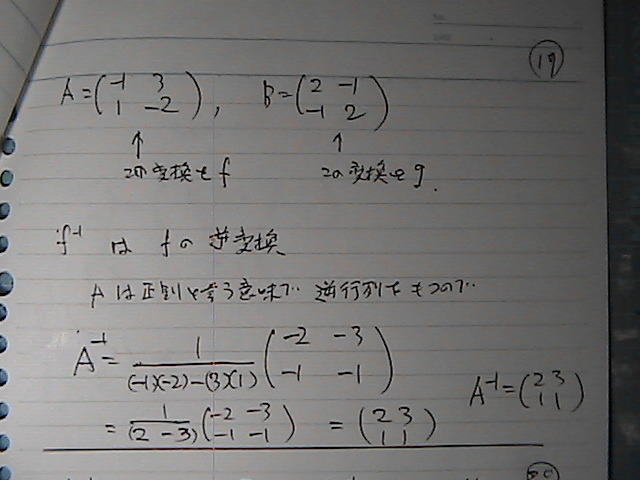 ⑲
A = (-1 3 / 1 -2), B = (2 -1 / -1 2)
↑ ↑
この変換をf この変換をg.
f⁻¹ は fの逆変換
Aは正則と言う意味で 逆行列をもつので
A⁻¹ = 1/((-1)(-2)-(3)(1)) (-2 -3 / -1 -1)
= 1/(2-3) (-2 -3 / -1 -1) = (2 3 / 1 1)
A⁻¹ = (2 3 / 1 1)